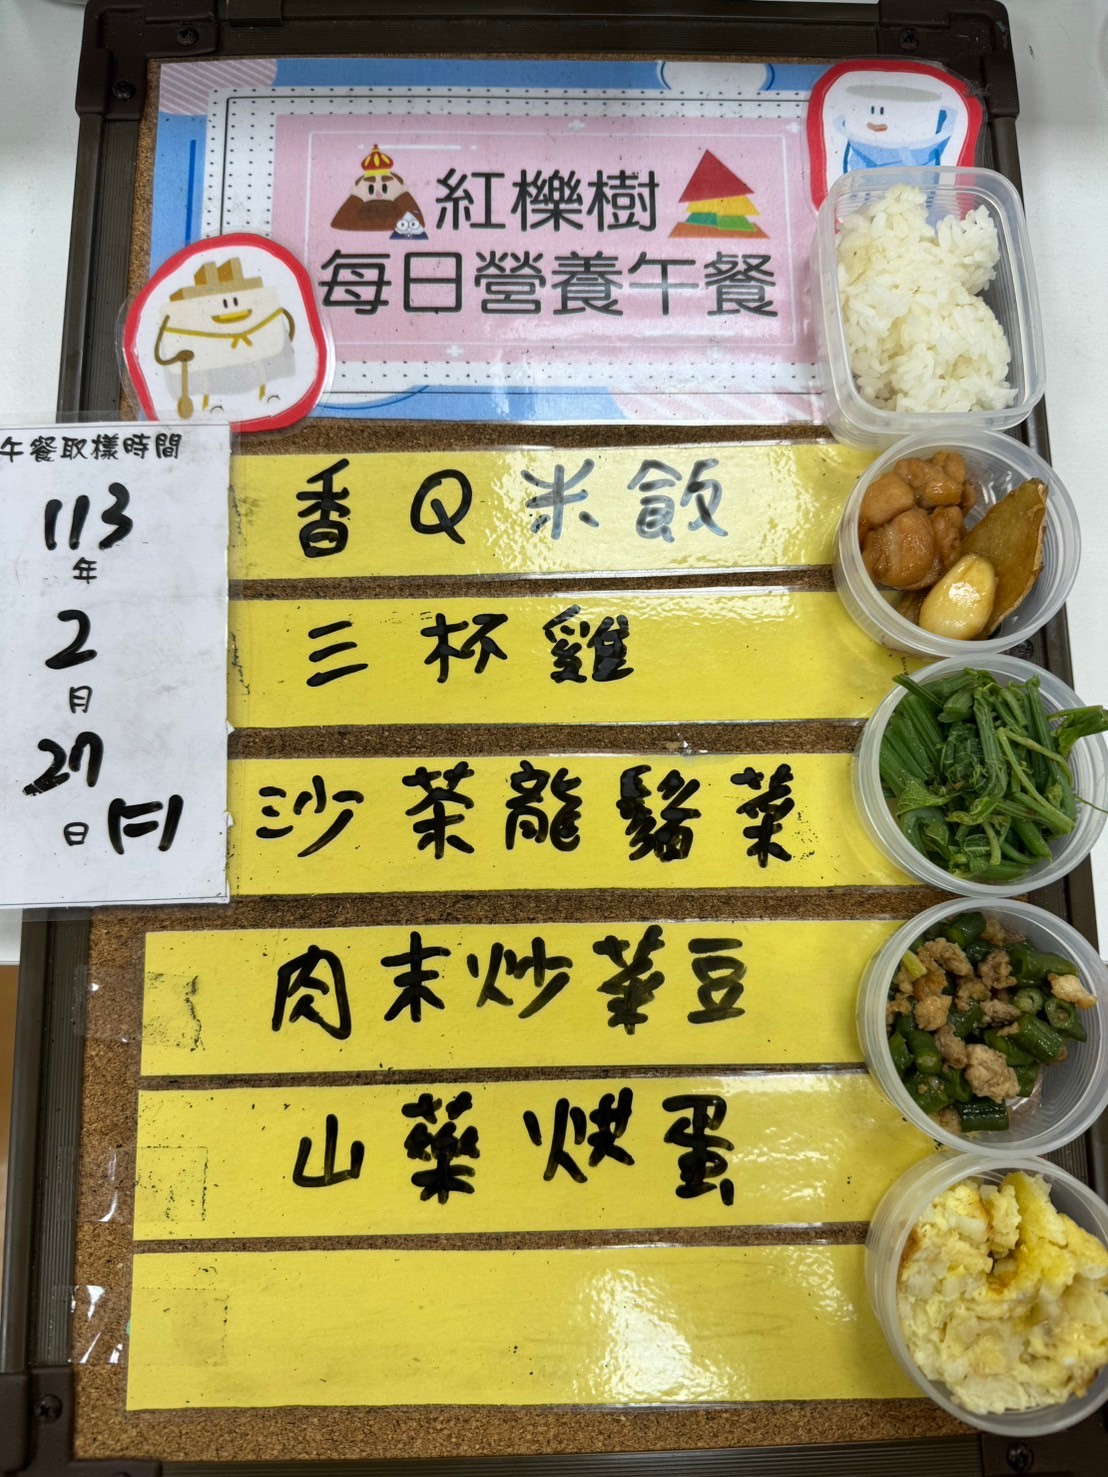 紅櫟樹
每日營養午餐
午餐取樣時間
113
年
2
月
27
日(二)
香Q米飯
三杯雞
沙茶龍鬚菜
肉末炒菜豆
山藥烘蛋